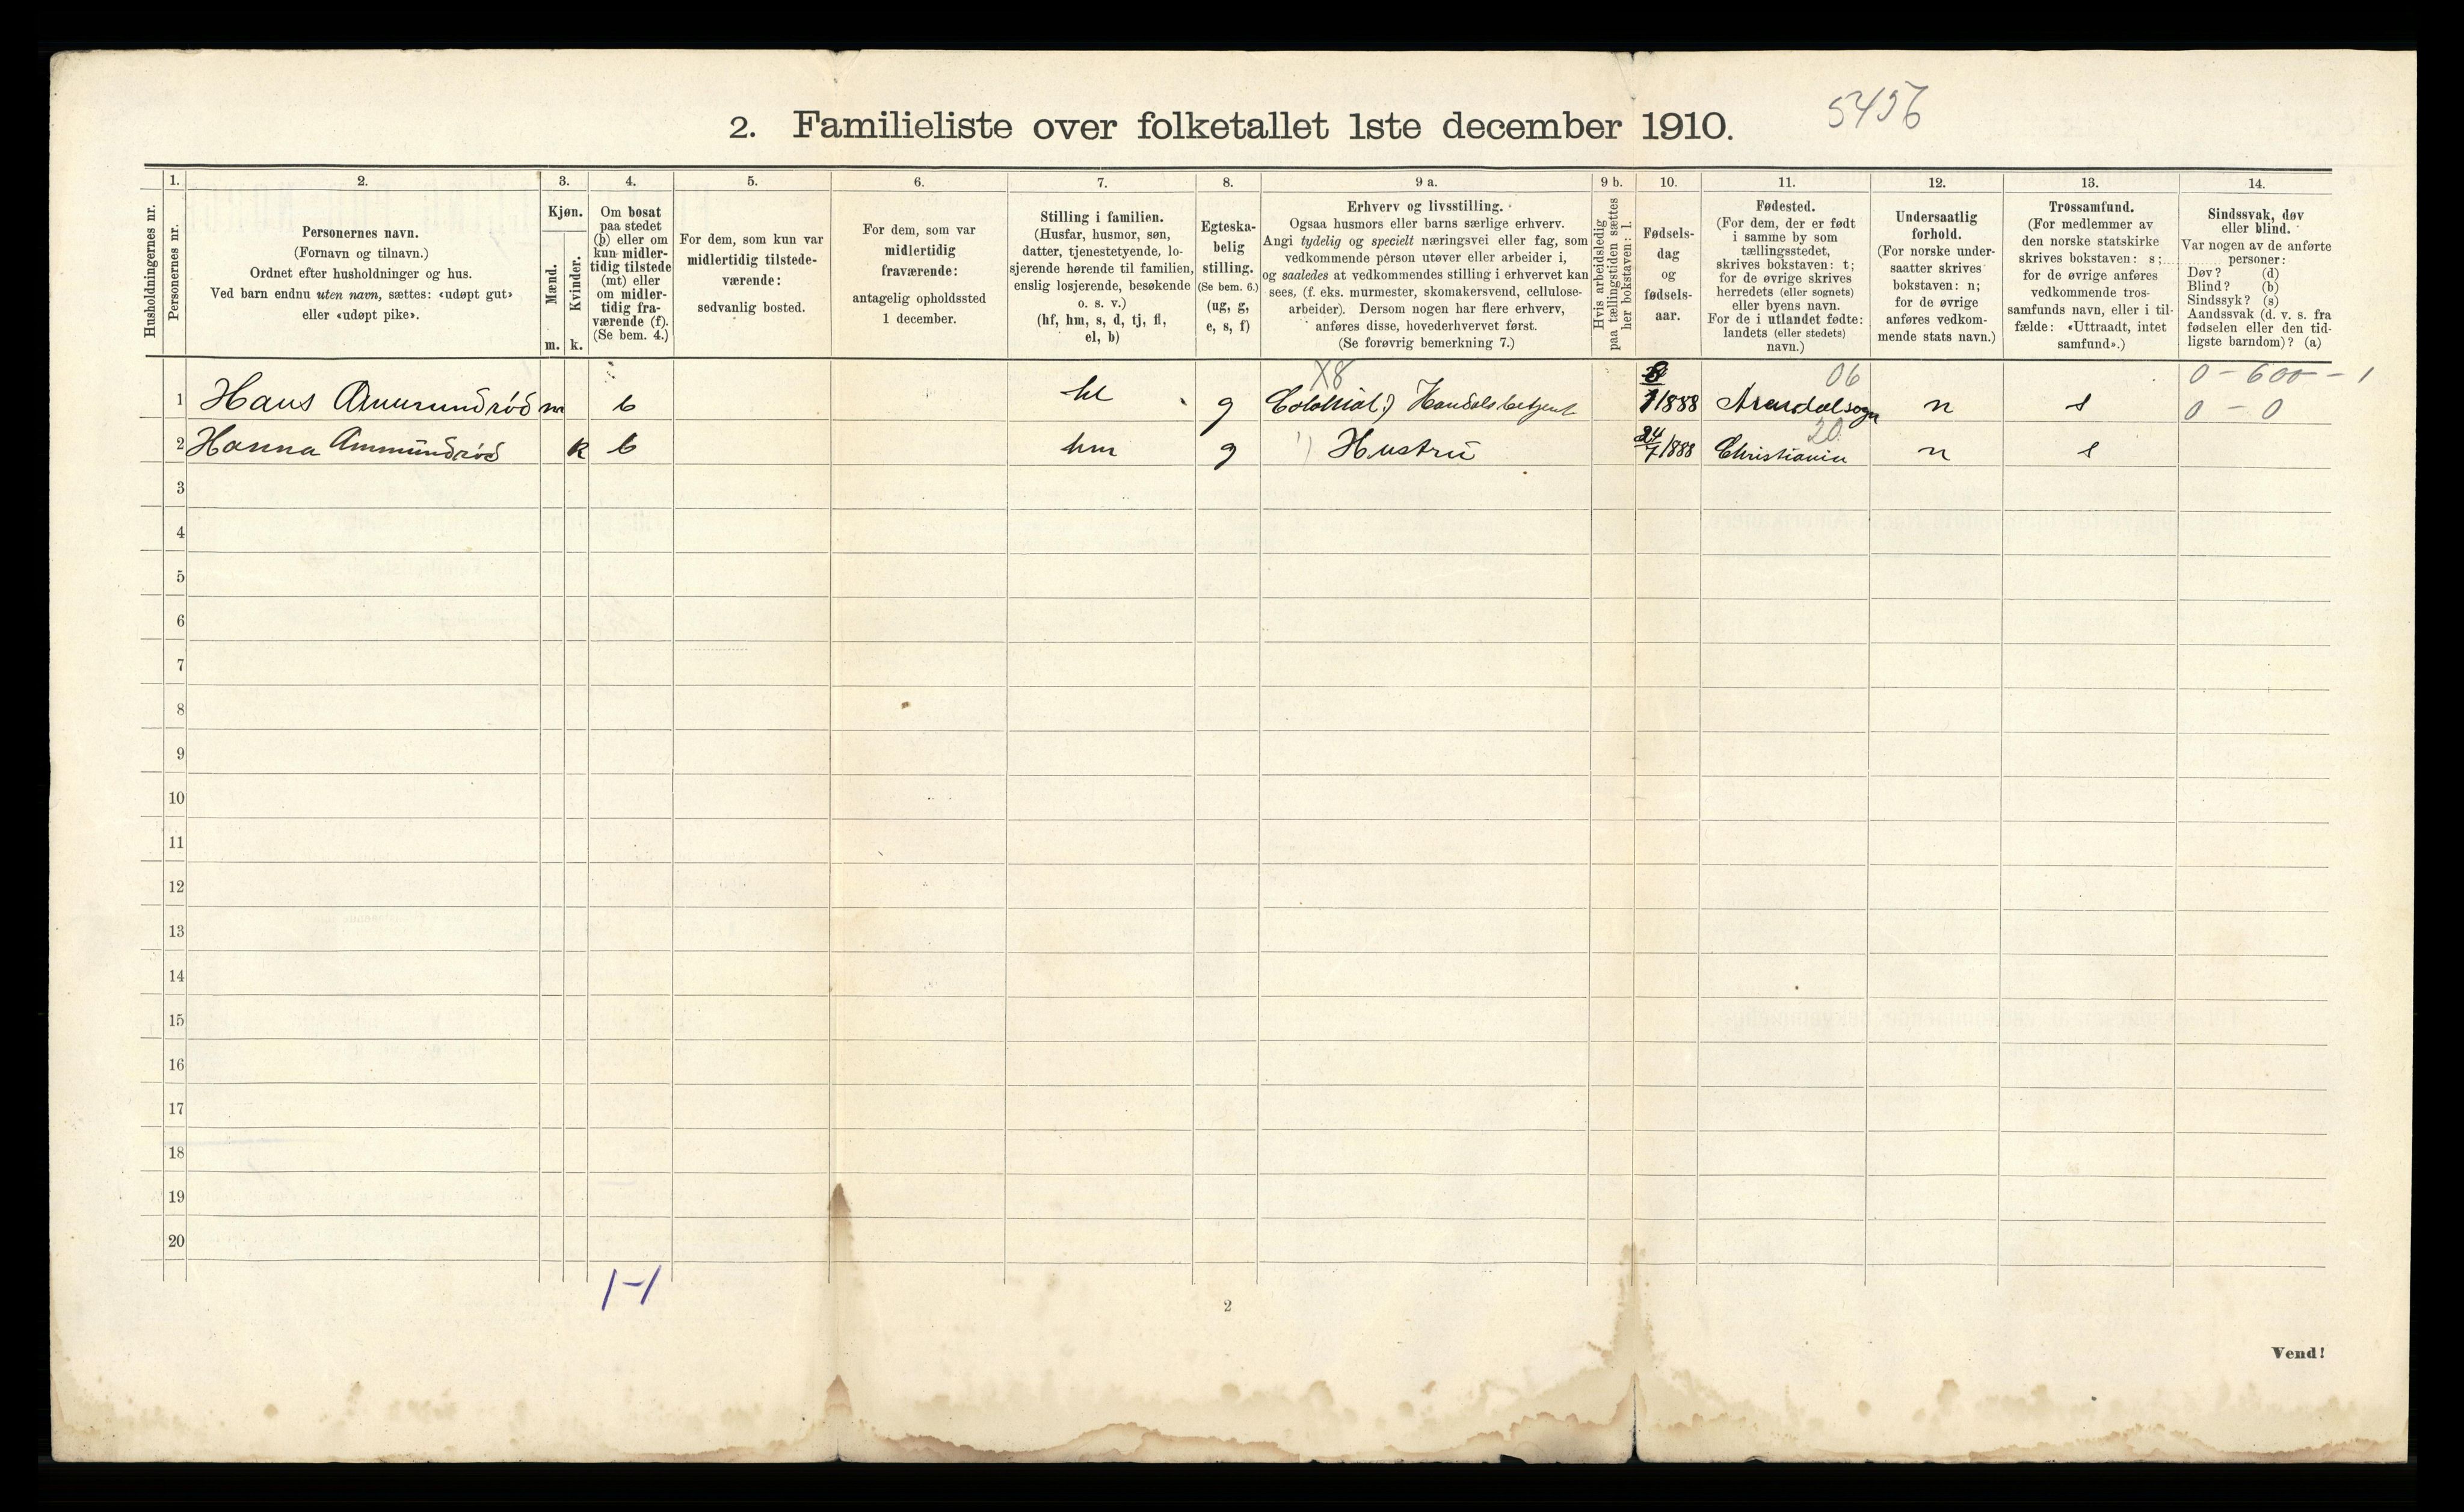 2. Familieliste over folketallet 1ste december 1910.
5456
1. 2. 3. 4. 5. 6. 7. 8. 9 a. 9 b. 10. 11. 12. 13. 14.
Husholdningernes nr.
Personernes nr.
Personernes navn.
(Fornavn og tilnavn.)
Ordnet efter husholdninger og hus.
Ved barn endnu uten navn, sættes: «udøpt gut»
eller «udøpt pike».
Kjøn.
Mænd.
Kvinder.
m. k.
Om bosat
paa stedet
(b) eller om
kun midler-
tidig tilstede
(mt) eller
om midler-
tidig fra-
værende (f).
(Se bem. 4.)
For dem, som kun var
midlertidig tilstede-
værende:
sedvanlig bosted.
For dem, som var
midlertidig
fraværende:
antagelig opholdssted
1 december.
Stilling i familien.
(Husfar, husmor, søn,
datter, tjenestetyende, lo-
sjerende hørende til familien,
enslig losjerende, besøkende
o. s. v.)
(hf, hm, s, d, tj, fl,
el, b)
Egteska-
belig
stilling.
(Se bem. 6.)
(ug, g,
e, s, f)
Erhverv og livsstilling.
Ogsaa husmors eller barns særlige erhverv.
Angi tydelig og specielt næringsvei eller fag, som
vedkommende person utøver eller arbeider i,
og saaledes at vedkommendes stilling i erhvervet kan
sees, (f. eks. murmester, skomakersvend, cellulose-
arbeider). Dersom nogen har flere erhverv,
anføres disse, hovederhvervet først.
(Se forøvrig bemerkning 7.)
Hvis arbeidsledig
paa tællingstiden sættes
her bokstaven: l.
Fødsels-
dag
og
fødsels-
aar.
Fødested.
(For dem, der er født
i samme by som
tællingsstedet,
skrives bokstaven: t;
for de øvrige skrives
herredets (eller sognets)
eller byens navn.
For de i utlandet fødte:
landets (eller stedets)
navn.)
Undersaatlig
forhold.
(For norske under-
saatter skrives
bokstaven: n;
for de øvrige
anføres vedkom-
mende stats navn.)
Trossamfund.
(For medlemmer av
den norske statskirke
skrives bokstaven: s;
for de øvrige anføres
vedkommende tros-
samfunds navn, eller i til-
fælde: «Uttraadt, intet
samfund».)
Sindssvak, døv
eller blind.
Var nogen av de anførte
personer:
Døv? (d)
Blind? (b)
Sindssyk? (s)
Aandssvak (d. v. s. fra
fødselen eller den tid-
ligste barndom)? (a)
X8 06 0 - 600 - 1
1 Hans Ammundrød m b hf g Colonial Handelsbetjent 8/1 1888 Arendalsogn n s 0 - 0
20
2 Hanna Ammundrød k b hm g Hustru 24/7 1888 Christiania n s
3
4
5
6
7
8
9
10
11
12
13
14
15
16
17
18
19
20
1-1
2
Vend!